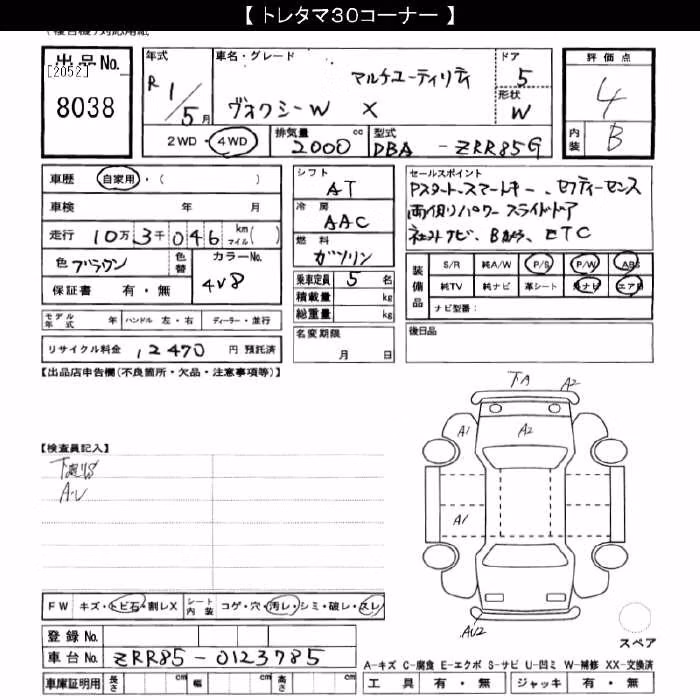 【 トレタマ30コーナー 】
出品No. [2052] 8038
年式 R 1/5月
車名・グレード マルチユーティリティ
ヴォクシーW X
ドア 5
形状 W
評価点 4
内装 B
2WD・4WD 排気量 2000 cc 型式 DBA - ZRR85G
車歴 自家用・( )
車検 年 月
走行 10万 3千 046 km マイル( )
色 ブラウン 色替 カラーNo. 4V8
保証書 有・無
モデル年式 年 ハンドル 左・右 ディーラー・並行
リサイクル料金 12470 円 預託済
シフト AT
冷房 AAC
燃料 ガソリン
乗車定員 5 名
積載量 kg
総重量 kg
名変期限
月 日
セールスポイント
Pスタート、スマートキー、セフティーセンス
両側パワースライドドア
社外ナビ、Bカメラ、ETC
装備品 S/R 純A/W P/S P/W ABS
純TV 純ナビ 革シート 外ナビ エアB
ナビ型番:
後日品
【出品店申告欄(不良箇所・欠品・注意事項等)】
【検査員記入】
A・U
下A A2
A1 A2
A1
AU2
FW キズ・トビ石・割レX シート内装 コゲ・穴・汚レ・シミ・破レ・スレ
登録No.
車台No. ZRR85-0123785
車庫証明用 長さ cm 幅 cm 高さ cm
スペア
A-キズ C-腐食 E-エクボ S-サビ U-凹ミ W-補修 XX-交換済
工具 有・無 ジャッキ 有・無